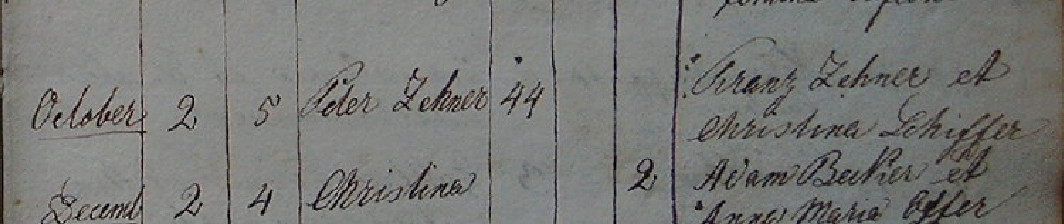 October 2 5 Peter Zehner 44 Franz Zehner et
Christina Schiffer
Decemb 2 4 Christina 2 Adam Becker et
Anna Maria Offer